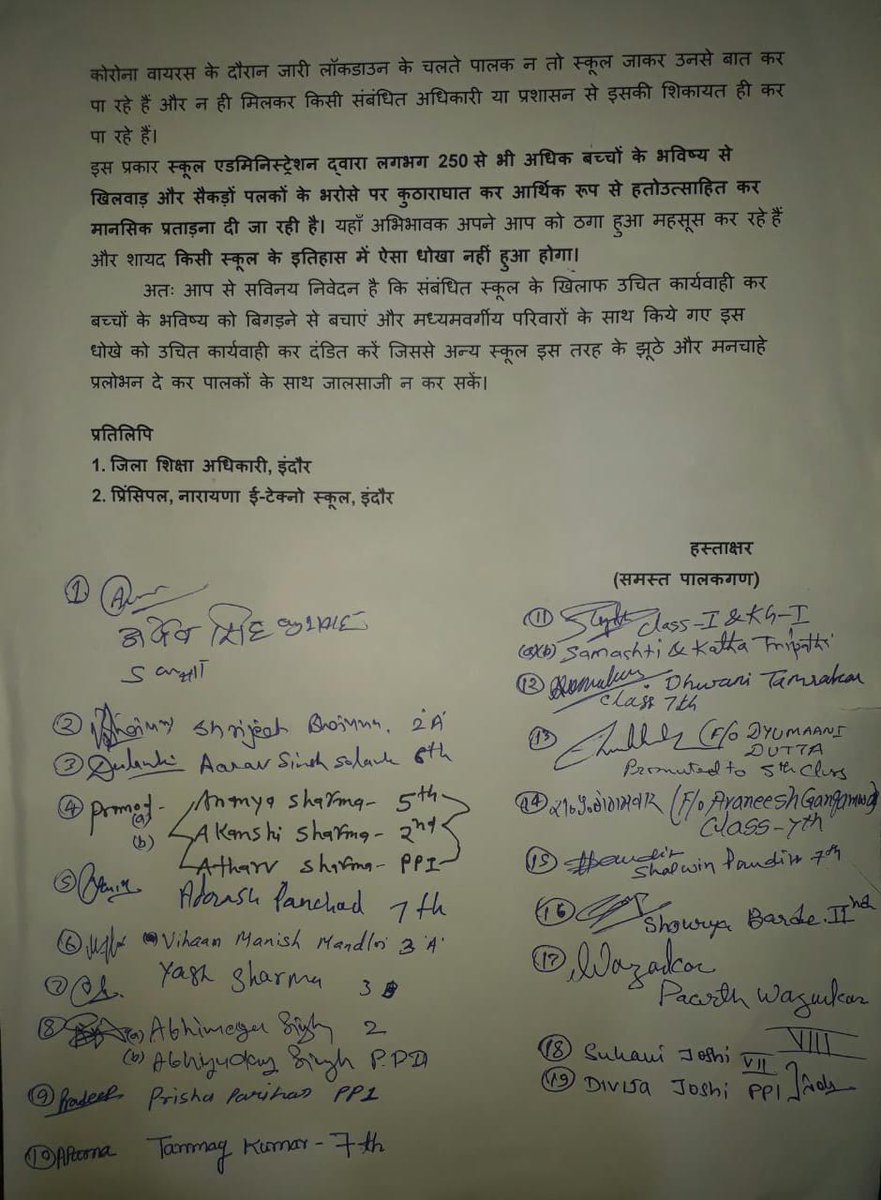 कोरोना वायरस के दौरान जारी लॉकडाउन के चलते पालक न तो स्कूल जाकर उनसे बात कर
पा रहे हैं और न ही मिलकर किसी संबंधित अधिकारी या प्रशासन से इसकी शिकायत ही कर
पा रहे हैं।
इस प्रकार स्कूल एडमिनिस्ट्रेशन द्वारा लगभग 250 से भी अधिक बच्चों के भविष्य से
खिलवाड़ और सैकड़ों पलकों के भरोसे पर कुठाराघात कर आर्थिक रूप से हतोउत्साहित कर
मानसिक प्रताड़ना दी जा रही है। यहाँ अभिभावक अपने आप को ठगा हुआ महसूस कर रहे हैं
और शायद किसी स्कूल के इतिहास में ऐसा धोखा नहीं हुआ होगा।
अतः आप से सविनय निवेदन है कि संबंधित स्कूल के खिलाफ उचित कार्यवाही कर
बच्चों के भविष्य को बिगड़ने से बचाएं और मध्यमवर्गीय परिवारों के साथ किये गए इस
धोखे को उचित कार्यवाही कर दंडित करें जिससे अन्य स्कूल इस तरह के झूठे और मनचाहे
प्रलोभन दे कर पालकों के साथ जालसाजी न कर सकें।
प्रतिलिपि
1. जिला शिक्षा अधिकारी, इंदौर
2. प्रिंसिपल, नारायणा ई-टेक्नो स्कूल, इंदौर
हस्ताक्षर
(समस्त पालकगण)
1
सिंह
2 Shrijeet 2 'A'
3 Solanki Aarav Singh Solanki 6th
4 Promod (a) Ananya Sharma - 5th
(b) Akanshi Sharma - 2nd
Atharv Sharma - PPI
5 Adarsh Panchad 7th
6 Vihaan Manish Mandloi 3 'A'
7 Yash Sharma 3
8 (a) Singh 2
(b) Abhyuday Singh
9 Pradeep Prisha Parihar PP1
10 Tanmay Kumar - 7th
11 Class-I & KG-I
(a)(b) Samashti & Katha Tripathi
12 Dhwani Tamrakar
Class 7th
13 (F/o DYUMAANI
DUTTA
Promoted to 5th Class
14 (F/o Avaneesh Gangarwad
Class-7th
15 Pandit 7th
16 Showrya Barde IInd
17 Wazarkar
18 Suhani Joshi VII VIII
19 Divija Joshi PPI